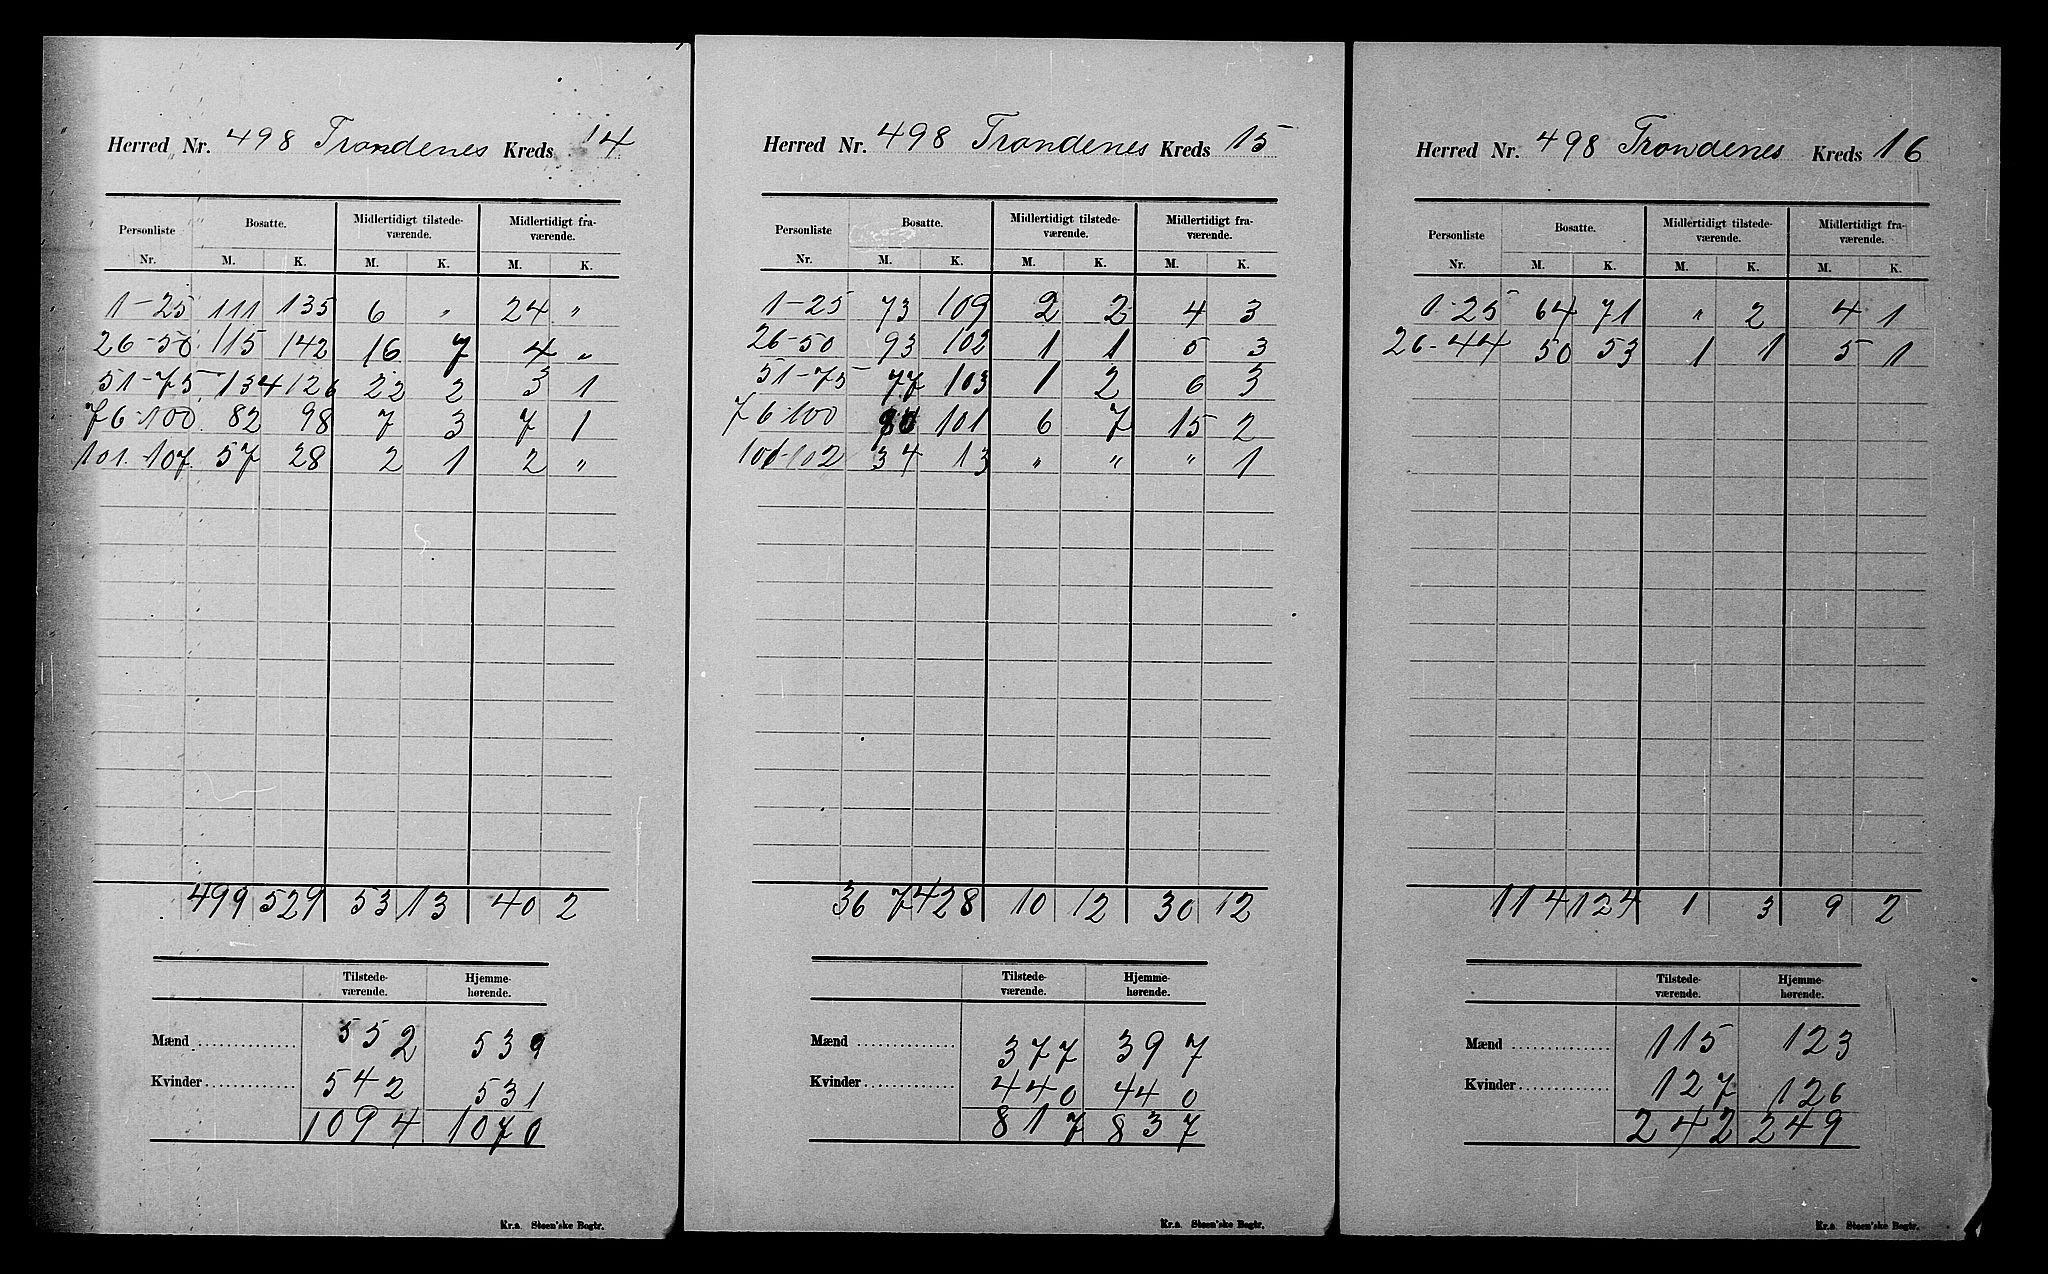 Herred Nr. 498 Trondenes Kreds 14
Personliste Bosatte. Midlertidigt tilstede- Midlertidigt fra-
værende. værende.
Nr. M. K. M. K. M. K.
1-25 111 135 6 " 24 "
26-50 115 142 16 7 4 "
51-75 134 126 22 2 3 1
76-100 82 98 7 3 7 1
101-107 57 28 2 1 2 "
499 529 53 13 40 2
Tilstede- Hjemme-
værende. hørende.
Mænd 552 539
Kvinder 542 531
1094 1070
Kr.a. Steen'ske Bogtr.
Herred Nr. 498 Trondenes Kreds 15
Personliste Bosatte. Midlertidigt tilstede- Midlertidigt fra-
værende. værende.
Nr. M. K. M. K. M. K.
1-25 73 109 2 2 4 3
26-50 93 102 1 1 5 3
51-75 77 103 1 2 6 3
76-100 90 101 6 7 15 2
101-102 34 13 " " " 1
367 428 10 12 30 12
Tilstede- Hjemme-
værende. hørende.
Mænd 377 397
Kvinder 440 440
817 837
Kr.a. Steen'ske Bogtr.
Herred Nr. 498 Trondenes Kreds 16
Personliste Bosatte. Midlertidigt tilstede- Midlertidigt fra-
værende. værende.
Nr. M. K. M. K. M. K.
1-25 64 71 " 2 4 1
26-44 50 53 1 1 5 1
114 124 1 3 9 2
Tilstede- Hjemme-
værende. hørende.
Mænd 115 123
Kvinder 127 126
242 249
Kr.a. Steen'ske Bogtr.